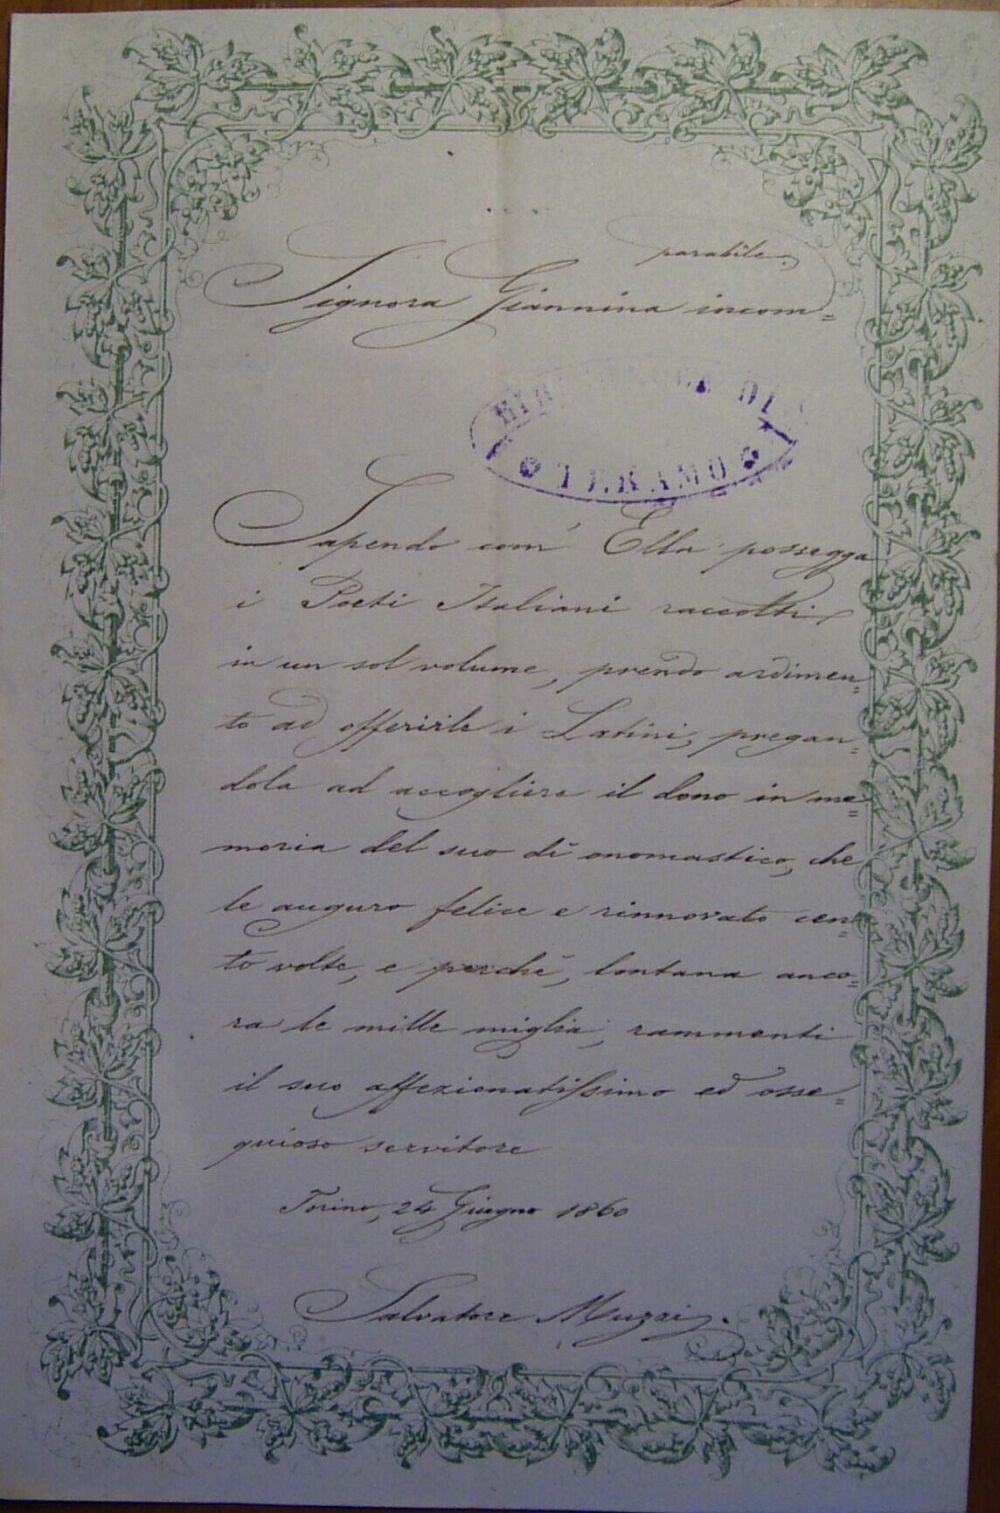 Signora Giannina incom=
parabile.
BIBLIOTECA DI
TERAMO
Sapendo com' Ella possegga
i Poeti Italiani raccolti
in un sol volume, prendo ardimen=
to ad offerirle i Latini, pregan=
dola ad accogliere il dono in me=
moria del suo dì onomastico, che
le auguro felice e rinnovato cen=
to volte, e perchè, lontana anco=
ra le mille miglia, rammenti
il suo affezionatissimo ed osse=
quioso servitore
Torino, 24 Giugno 1860
Salvatore Muzzi.